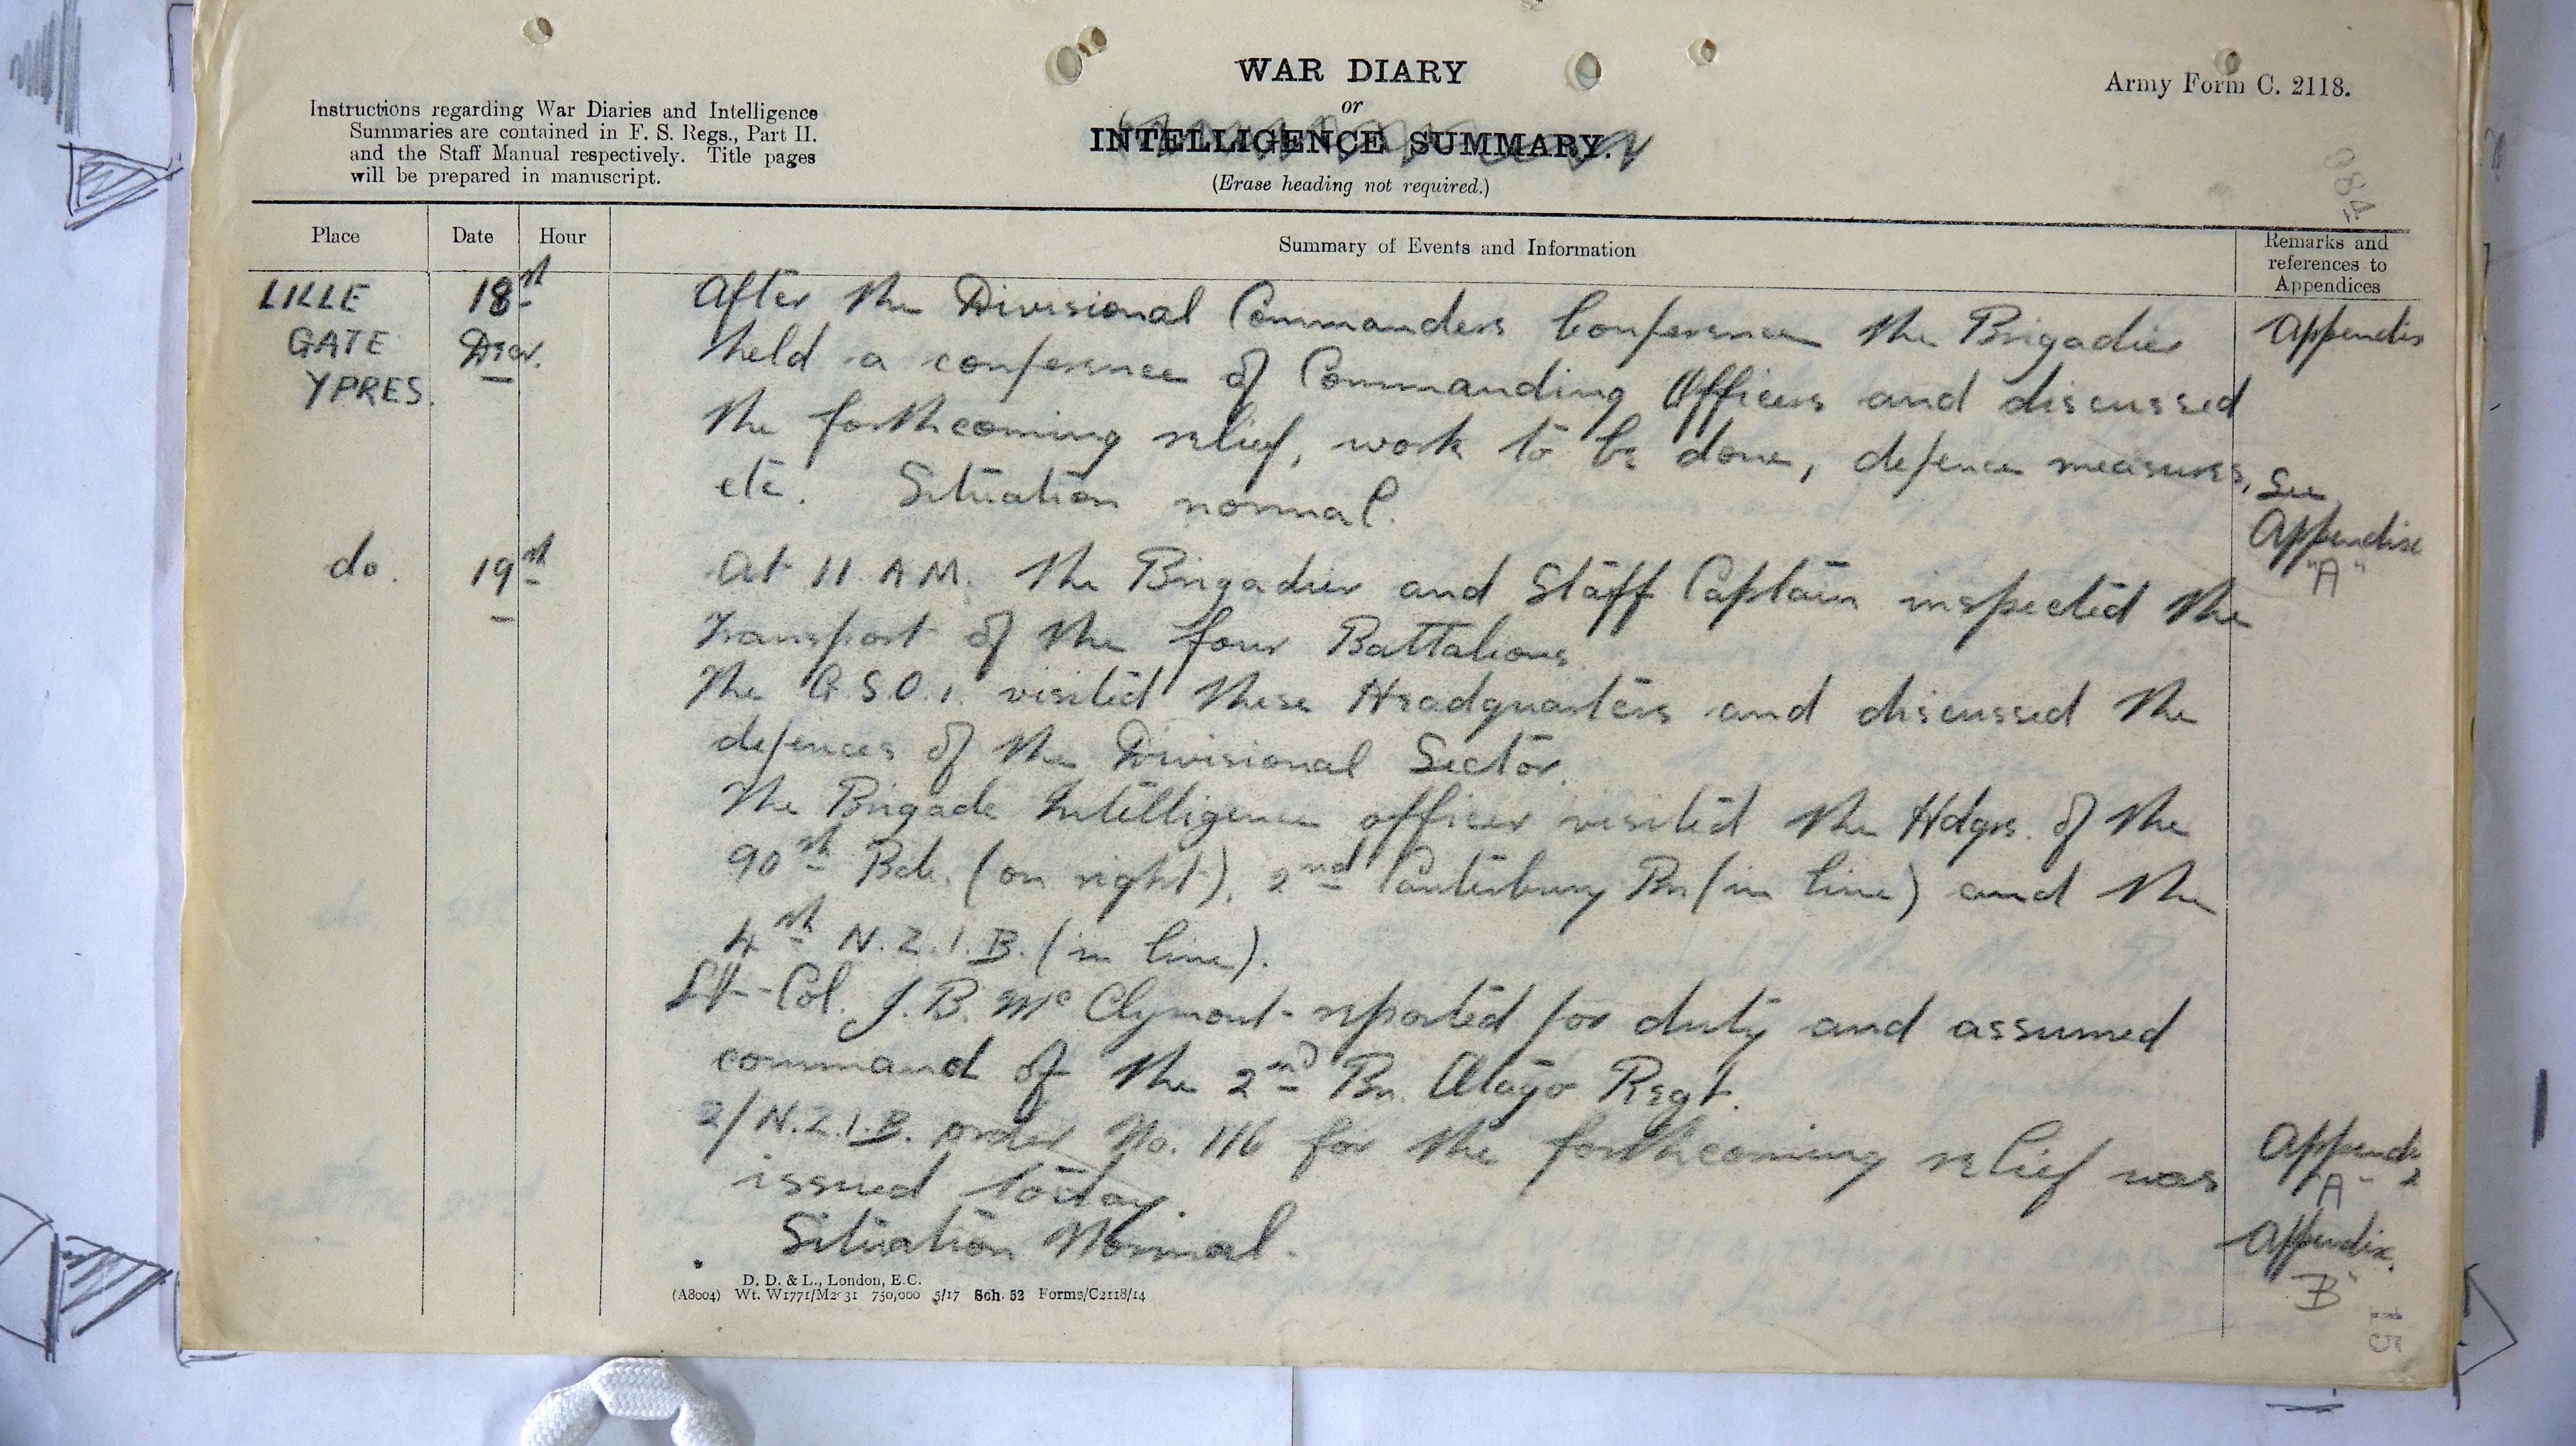 WAR DIARY
or
INTELLIGENCE SUMMARY.
(Erase heading not required.)
Army Form C. 2118.
Instructions regarding War Diaries and Intelligence
Summaries are contained in F. S. Regs., Part II.
and the Staff Manual respectively. Title pages
will be prepared in manuscript.
Place
Date
Hour
Summary of Events and Information
Remarks and
references to
Appendices
LILLE
GATE
YPRES.
18th
Decr.
After the Divisional Commanders Conference the Brigadier
held a conference of Commanding Officers and discussed
the forthcoming relief, work to be done, defence measures,
etc. Situation normal.
Appendix
See
Appendix
"A"
do.
19th
At 11 A.M. the Brigadier and Staff Captain inspected the
Transport of the four Battalions.
The G.S.O.1. visited these Headquarters and discussed the
defences of the Divisional Sector.
The Brigade Intelligence officer visited the Hdqrs. of the
90th Bde. (on right), 2nd Canterbury Bn (in line) and the
4th N.Z.I.B. (in line).
Lt-Col. J.B. McClymont reported for duty and assumed
command of the 2nd Bn. Otago Regt.
2/N.Z.I.B. order No. 116 for the forthcoming relief was
issued today.
Situation Normal.
"A" 2
Appendix
"B"
D. D. & L., London, E.C.
(A8004) Wt. W1771/M2031 750,000 5/17 Sch. 52 Forms/C2118/14